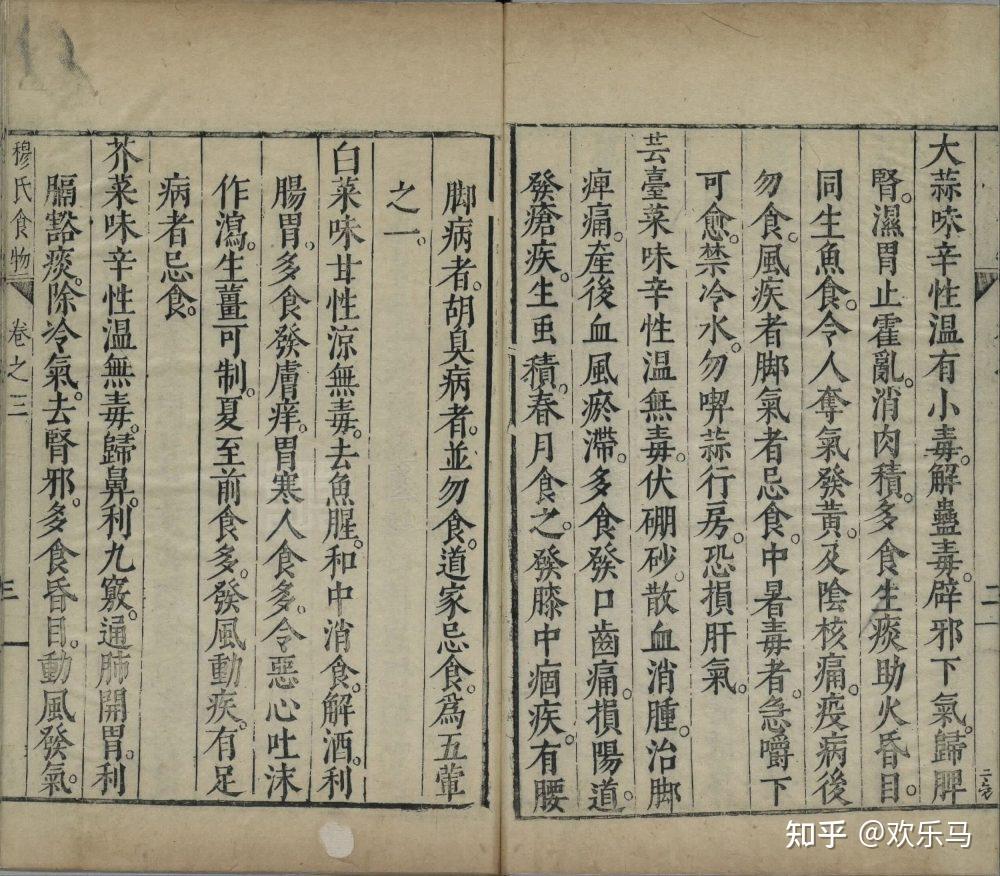 大蒜味辛性温有小毒。解蠱毒。辟邪下氣。歸脾
腎。濕胃止霍亂。消肉積。多食生痰助火昏目。
同生魚食。令人奪氣發黄。及陰核痛。疫病後
勿食。風疾者脚氣者忌食。中暑毒者。急嚼下
可愈。禁冷水。勿喫蒜行房。恐損肝氣。
芸臺菜味辛性温無毒。伏硼砂。散血消腫。治脚
痺痛。産後血風瘀滯。多食發口齒痛。損陽道。
發瘡疾。生虫積。春月食之。發膝中痼疾。有腰
脚病者。胡臭病者。並勿食。道家忌食。爲五葷
之一。
白菜味甘性涼無毒。去魚腥。和中消食。解酒。利
腸胃。多食發膚痒。胃寒人食多。令惡心吐沫
作瀉。生薑可制。夏至前食多。發風動疾。有足
病者忌食。
芥菜味辛性温無毒。歸鼻。利九竅。通肺開胃。利
膈豁痰。除冷氣。去腎邪。多食昏目。動風發氣。
穆氏食物 卷之三 三
知乎 @欢乐马